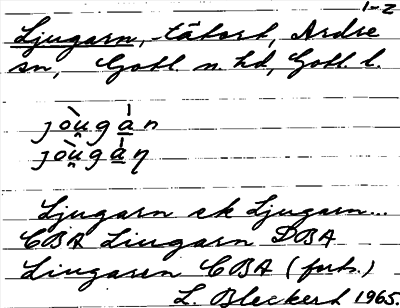 1-2
Ljugarn, tätort, Ardre
sn, Gotl. n. hd, Gotl. l.
jòu̯gán
jòu̯gáŋ
Ljugarn ek Ljugarn...
CBA Liugarn DBA
Liugaren CBA (forts.)
L. Bleckert 1965.